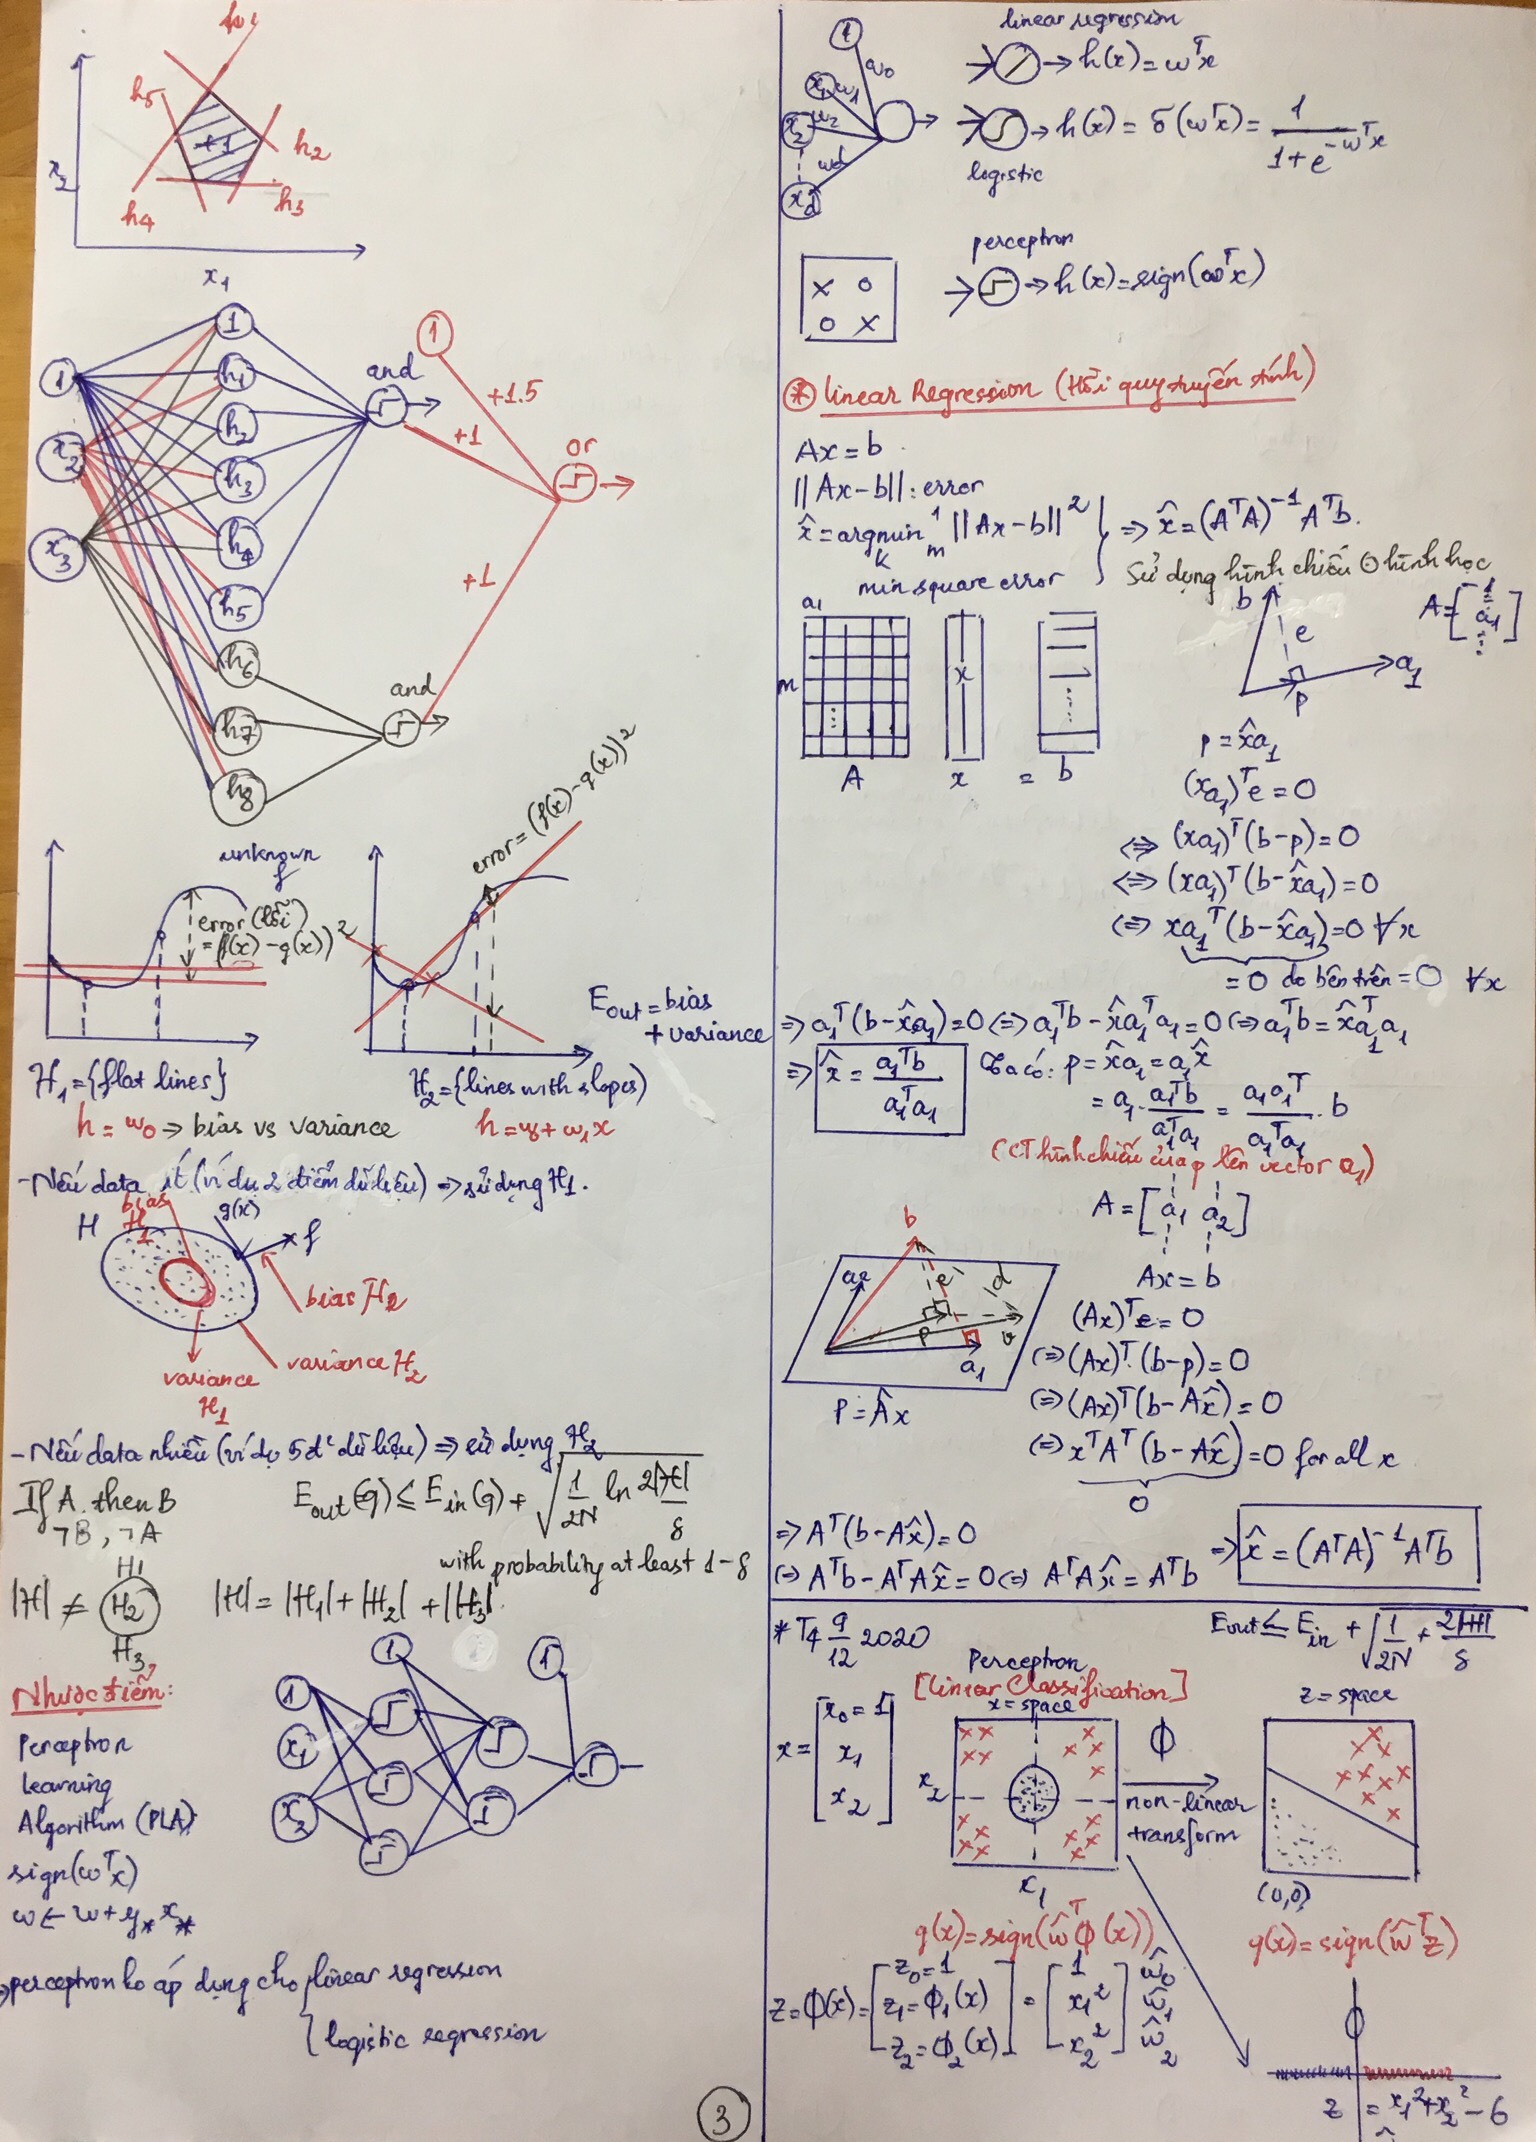 h1
h5
+1
h2
x2
h4
h3
x1
1
1
1
h1
and
x2
h2
+1.5
+1
or
h3
x3
h4
+1
h5
h6
and
h7
h8
unknown
f
error (lỗi)
= f(x) - g(x))²
error = (f(x) - g(x))²
Eout = bias
+ variance
H1 = {flat lines}
H2 = {lines with slopes)
h = w0 => bias vs variance
- Nếu data ít (ví dụ 2 điểm dữ liệu) => sử dụng H1.
bias
H1
H
g(x)
f
bias H2
variance H2
variance
H1
- Nếu data nhiều (ví dụ 5 đ' dữ liệu) => sử dụng H2
If A then B
¬B, ¬A
Eout(g) ≤ Ein(g) + √(1/2N ln 2|H|/δ)
with probability at least 1-δ
H1
|H| ≠ H2
H3
|H| = |H1| + |H2| + |H3|
Nhược điểm:
Perceptron
Learning
Algorithm (PLA)
sign(wᵀx)
w ← w + y* x*
1
1
1
x1
x2
=> perceptron ko áp dụng cho linear regression
logistic regression
3
1
w0
x1
w1
x2
w2
wd
xd
linear regression
→ h(x) = wᵀx
→ h(x) = δ(wᵀx) = 1/(1+e^-wᵀx)
logistic
x o
o x
perceptron
→ h(x) = sign(wᵀx)
* linear Regression (Hồi quy tuyến tính)
Ax = b
||Ax-b|| : error
x̂ = argmin 1/m ||Ax-b||² => x̂ = (AᵀA)⁻¹Aᵀb.
min square error
Sử dụng hình chiếu hình học
a1
m
A x = b
x
b
e
p
a1
A = [a1]
p = x̂a1
(xa1)ᵀe = 0
<=> (xa1)ᵀ(b-p) = 0
<=> (xa1)ᵀ(b-x̂a1) = 0
<=> xa1ᵀ(b-x̂a1) = 0 ∀x
= 0 do bên trên = 0 ∀x
=> a1ᵀ(b-x̂a1) = 0 <=> a1ᵀb - x̂a1ᵀa1 = 0 <=> a1ᵀb = x̂a1ᵀa1
=> x̂ = a1ᵀb/a1ᵀa1
Ta có: p = x̂a1 = a1x̂
= a1 · a1ᵀb/a1ᵀa1 = a1a1ᵀ/a1ᵀa1 · b
(CT hình chiếu của p lên vector a1)
A = [a1 a2]
Ax = b
b
a2
e
d
p
v
a1
P = Âx
(Ax)ᵀe = 0
<=> (Ax)ᵀ(b-p) = 0
<=> (Ax)ᵀ(b-Ax̂) = 0
<=> xᵀAᵀ(b-Ax̂) = 0 for all x
0
=> Aᵀ(b-Ax̂) = 0
<=> Aᵀb - AᵀAx̂ = 0 <=> AᵀAx̂ = Aᵀb
=> x̂ = (AᵀA)⁻¹Aᵀb
* T4 9/12 2020
Eout ≤ Ein + √(1/2N + 2|H|/δ)
Perceptron
[linear Classification]
x = space
z = space
x = [x0 = 1
x1
x2]
x2
x1
ϕ
non-linear
transform
(0,0)
g(x) = sign(ŵᵀϕ(x))
g(x) = sign(ŵᵀz)
z = ϕ(x) = [z0 = 1
z1 = ϕ1(x)
z2 = ϕ2(x)] = [1
x1²
x2²] ŵ0
ŵ1
ŵ2
ϕ
z = x1² + x2² - 6